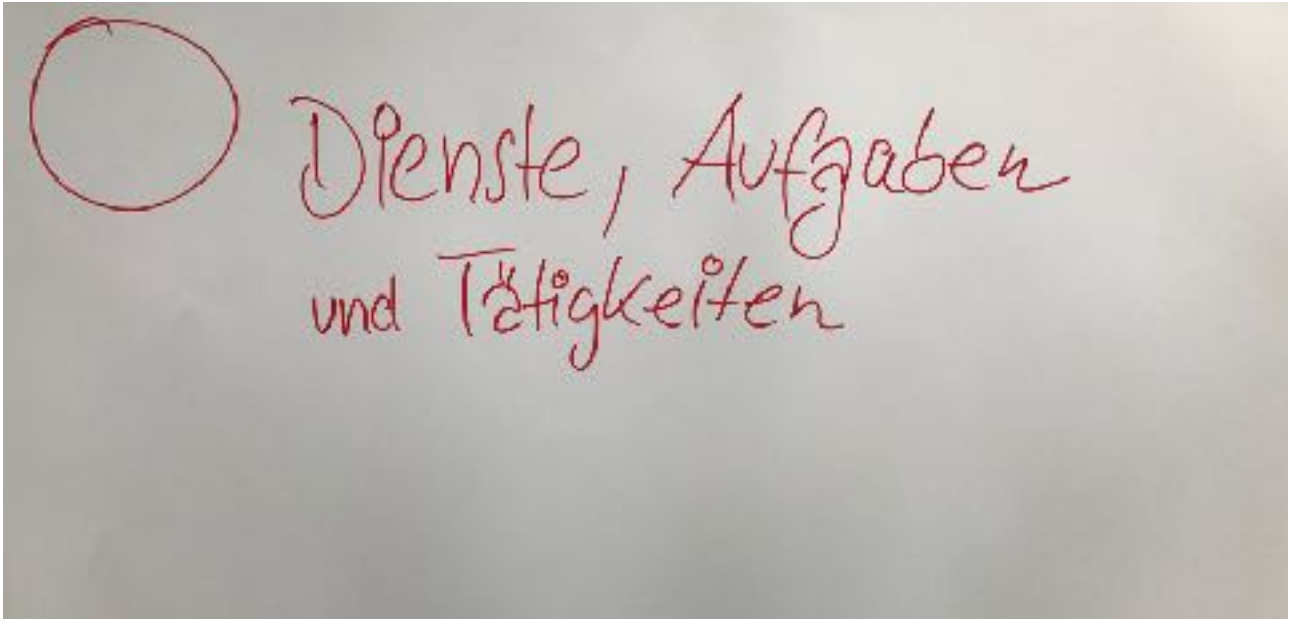 Dienste, Aufgaben
und Tätigkeiten